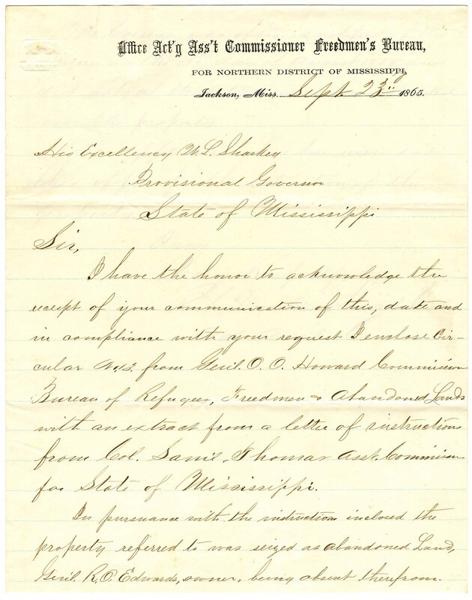 Office Act'g Ass't Commissioner Freedmen's Bureau,
FOR NORTHERN DISTRICT OF MISSISSIPPI,
Jackson, Miss. Sept 23rd 1865.
His Excellency W L Sharkey
Provisional Governor
State of Mississippi
Sir,
I have the honor to acknowledge the
receipt of your communication of this, date and
in compliance with your request I enclose Cir-
cular from Genl. O. O. Howard Commission
Bureau of Refugees, Freedmen & Abandoned Lands
with an extract from a letter of instructions
from Col. Saml. Thomas Asst. Commission
for State of Mississippi.
In pursuance with the instruction inclosed the
property referred to was seized as abandoned Land,
Genl. R. O. Edwards, owner, being absent therefrom.